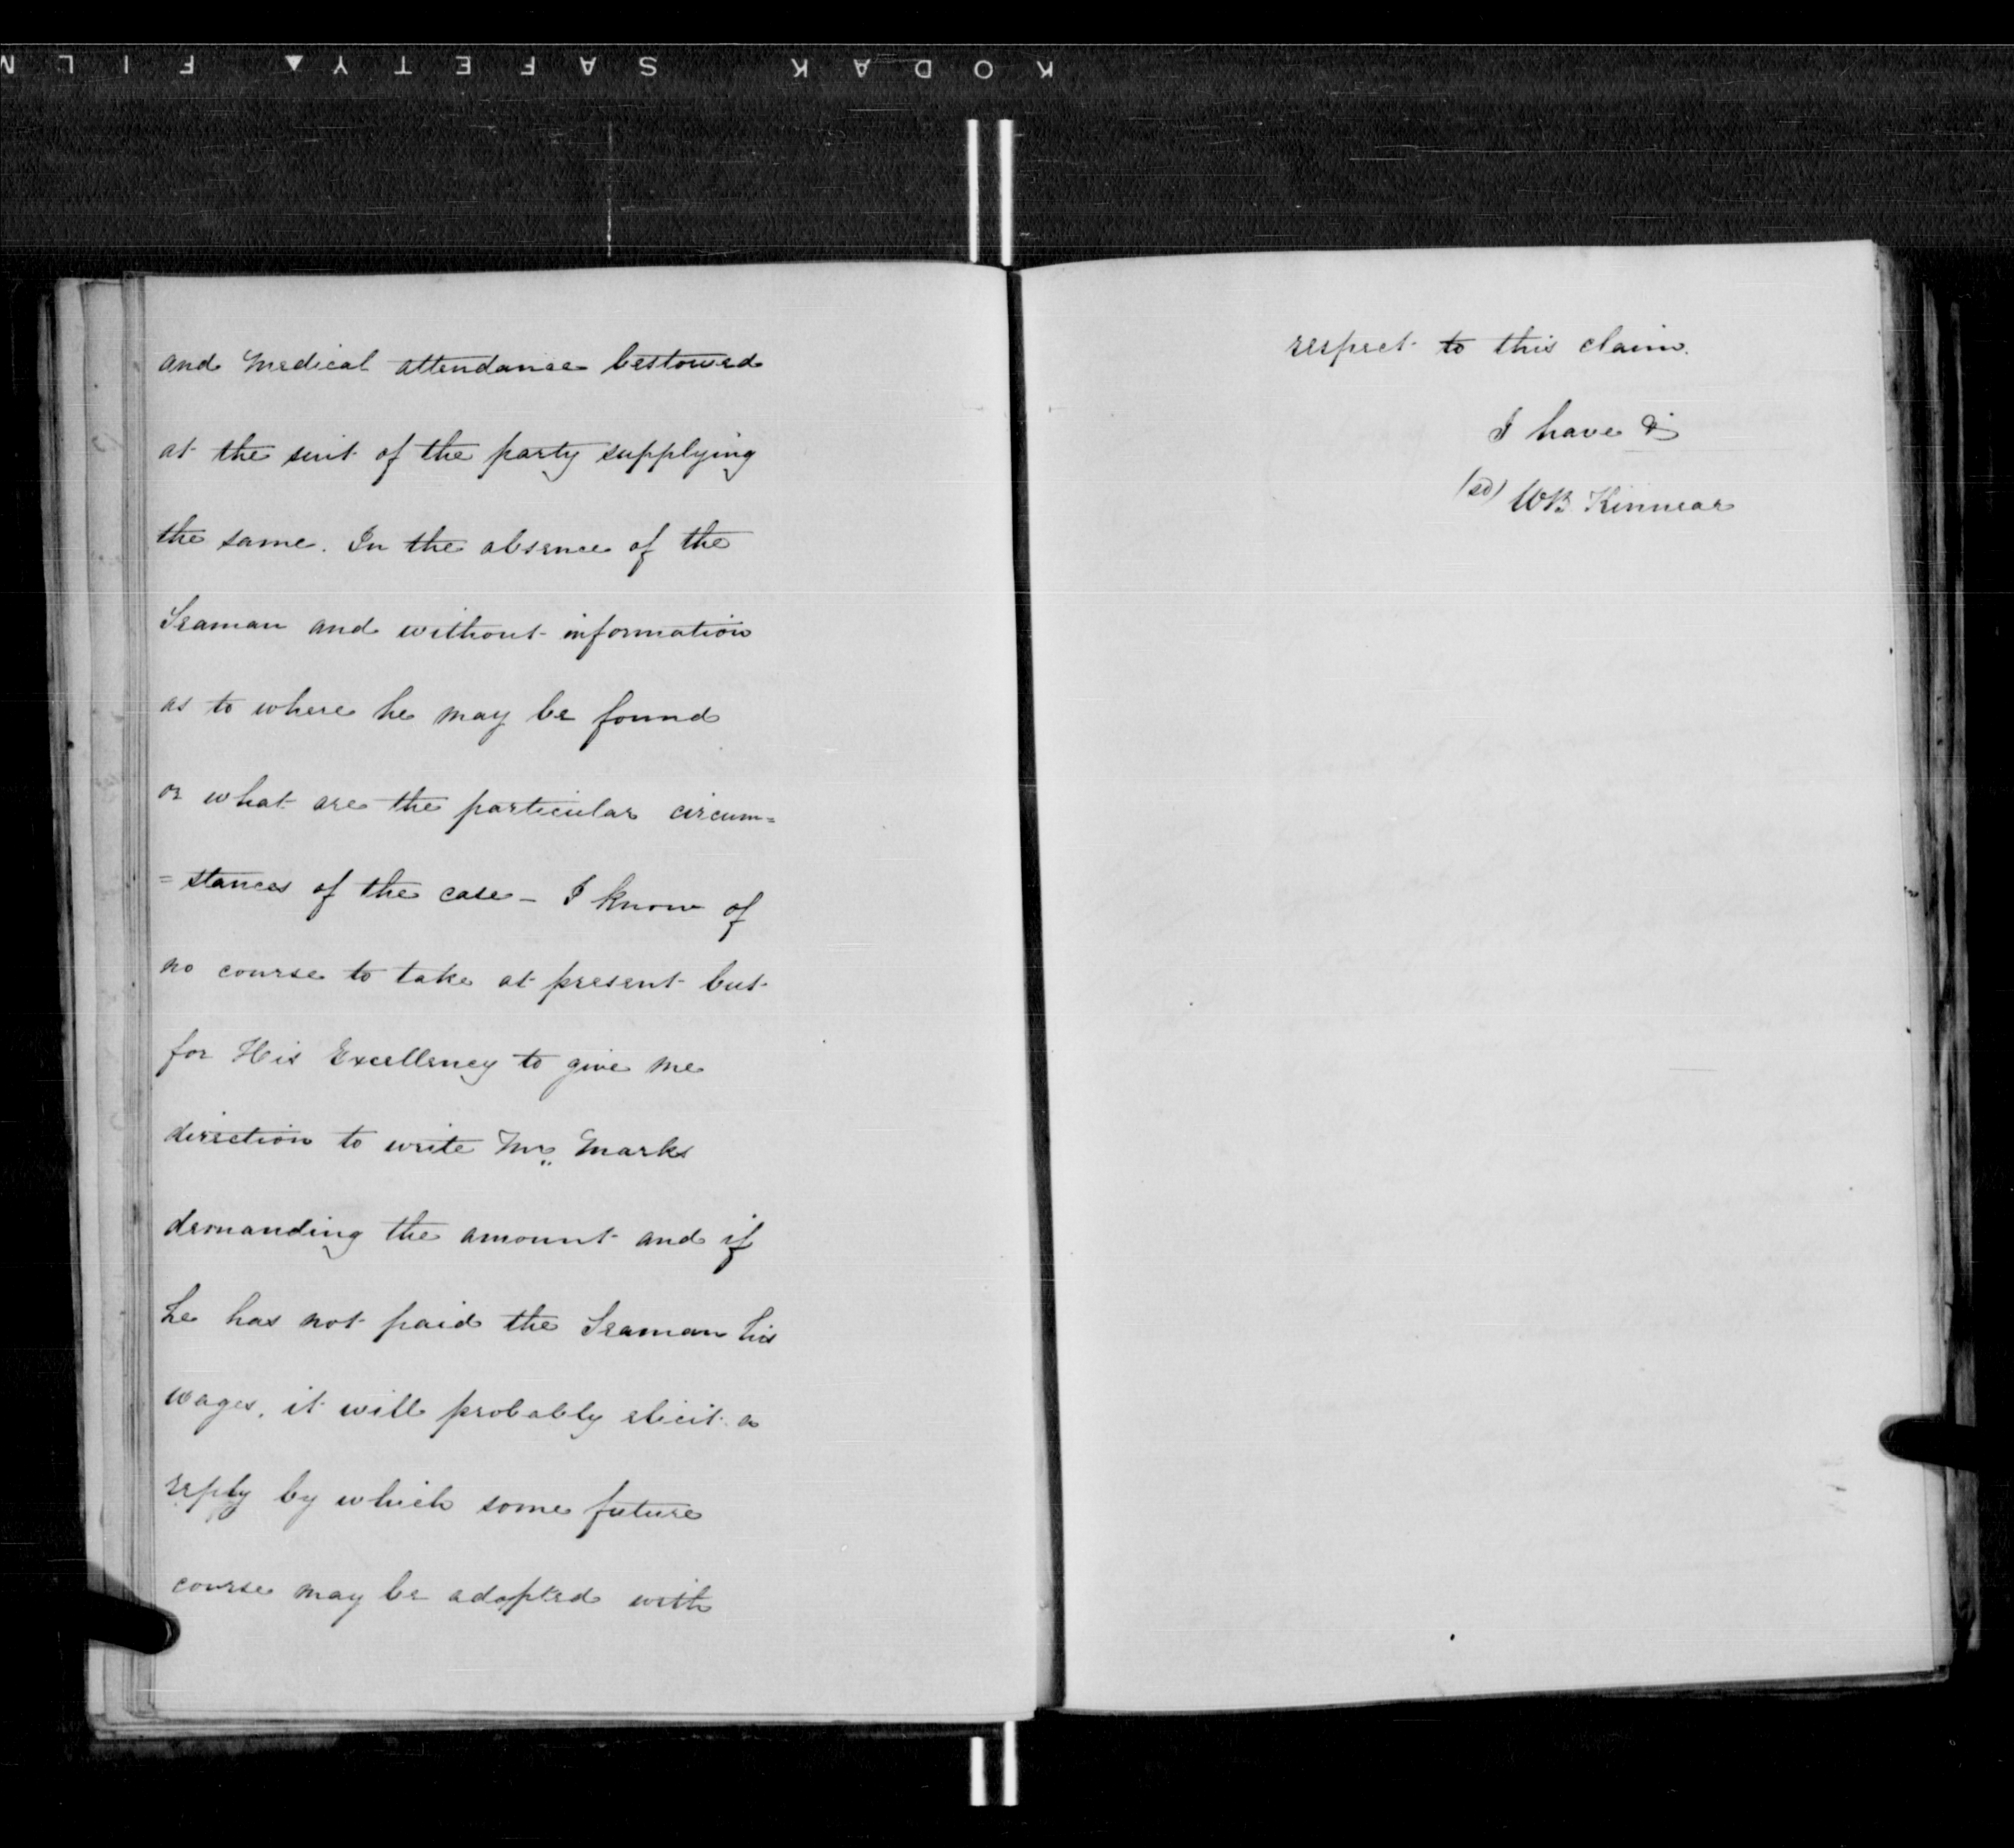 KODAK SAFETY▲FILM
and Medical attendance bestowed
at the suit of the party supplying
the same. In the absence of the
Seaman and without information
as to where he may be found
or what are the particular circum=
=stances of the case – I know of
no course to take at present but
for His Excellency to give me
direction to write Mr. Marks
demanding the amount and if
he has not paid the Seaman his
wages, it will probably elicit a
reply by which some future
course may be adopted with
respect to this claim.
I have &
(sd) WB Kinnear